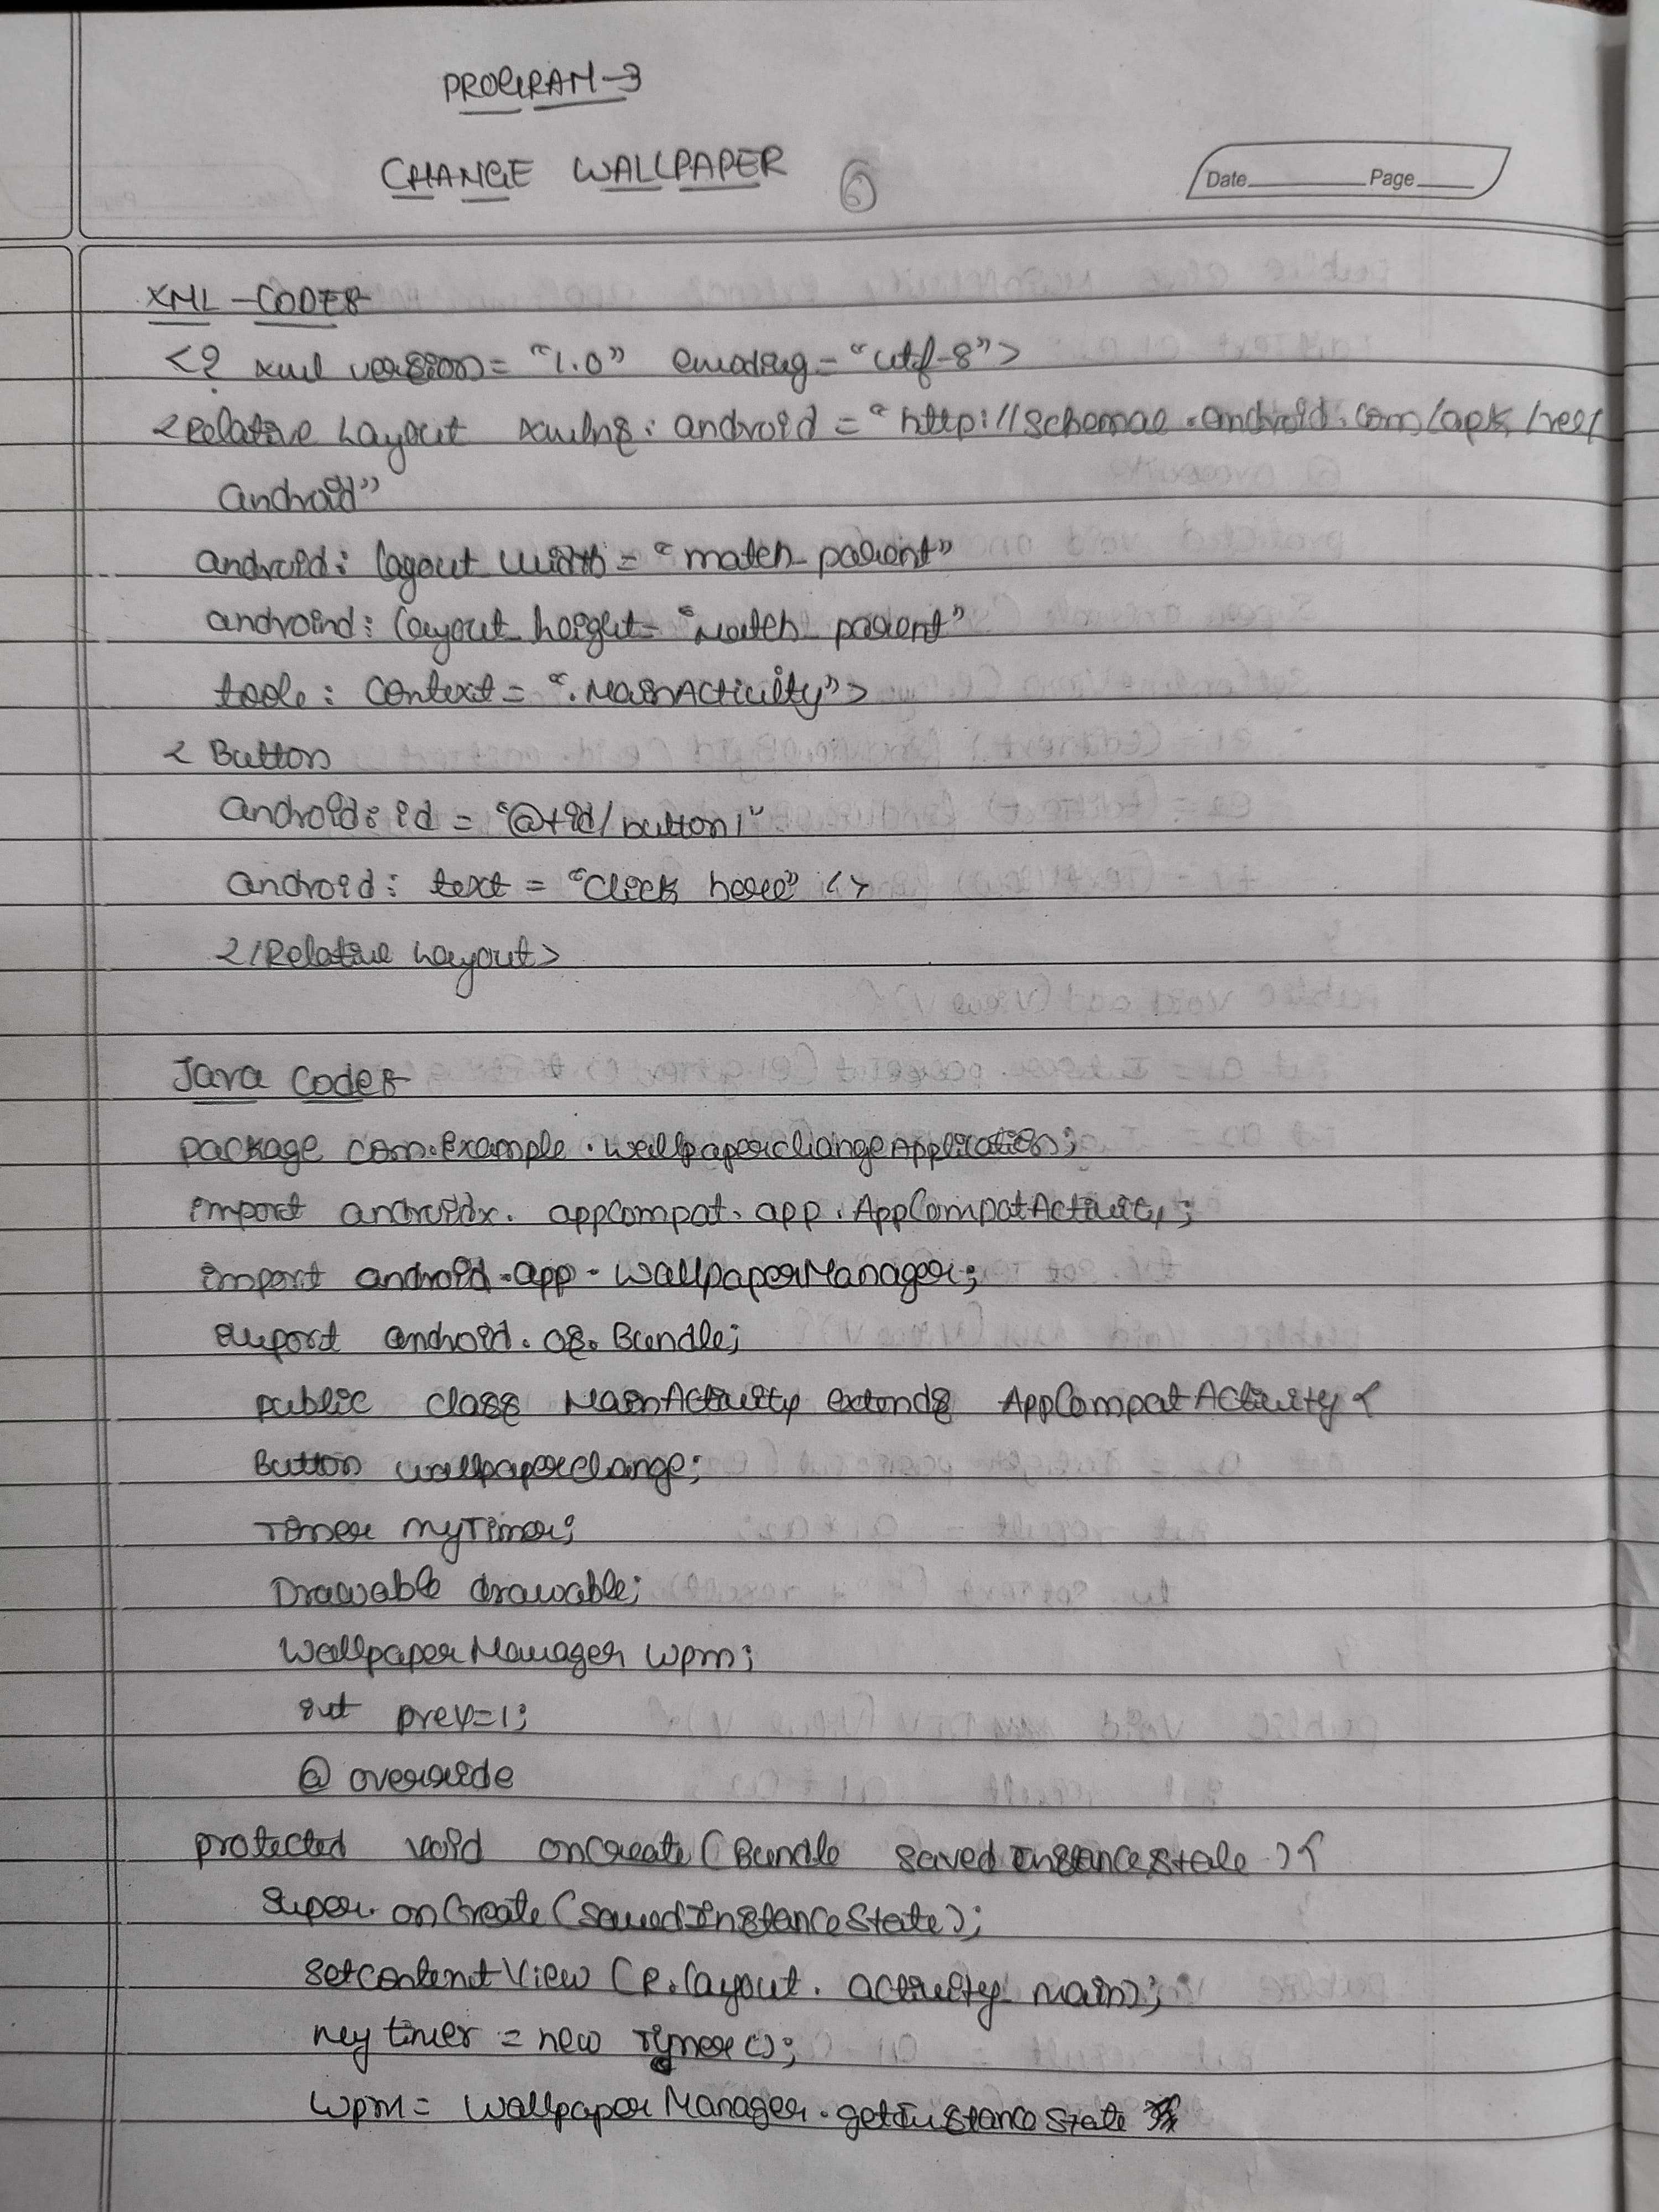 PROGRAM-3
CHANGE WALLPAPER
6
Date Page
XML-CODE:-
<? xml version= "1.0" encoding= "utf-8">
<Relative Layout xmlns: android = "http://schemae.android.com/apk/res/
android"
android: layout_width = "match_parent"
androind: layout_height= "match_parent"
tools: Context = ".MainActivity">
< Button
android: id = "@+id/button1"
android: text = "Click here" />
</Relative Layout>
Java Code:-
package com.example.wallpaperchangeApplication;
import androidx. appcompat. app. AppCompatActivity;
import android.app.WallpaperManager;
import android.os.Bundle;
public class MainActivity extends AppCompatActivity {
Button wallpaperchange;
Timer myTimer;
Drawable drawable;
WallpaperManager wpm;
int prev=1;
@ override
protected void onCreate (Bundle saved InstanceState ){
super. onCreate (savedInstanceState);
setcontentView (R.layout. activity_main);
my timer = new Timer ();
wpm= WallpaperManager.getInstance State